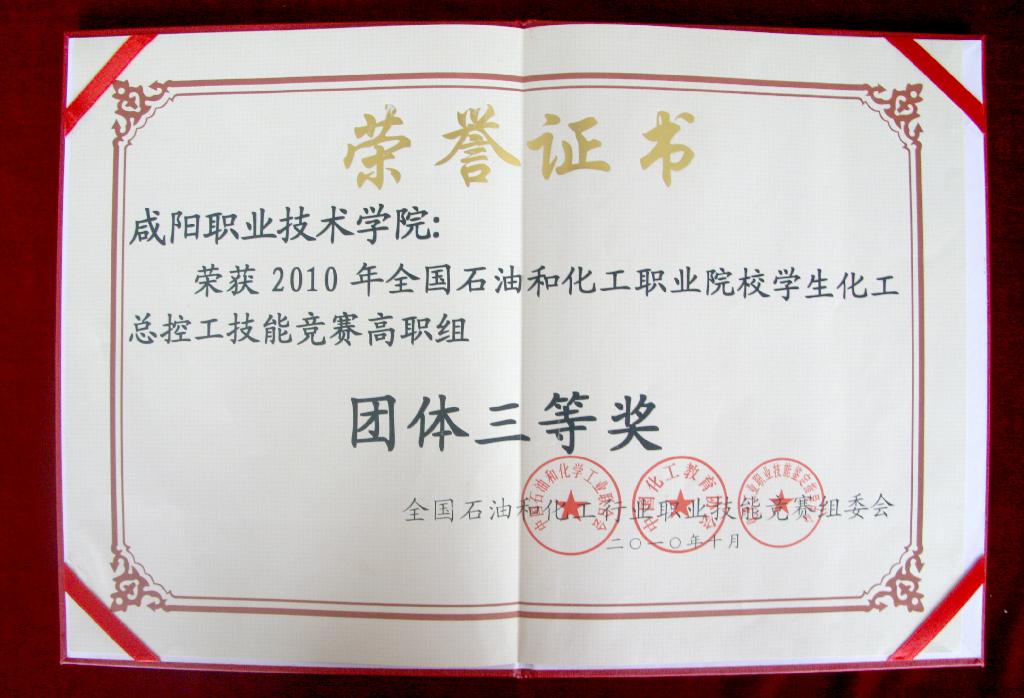 荣誉证书
咸阳职业技术学院:
荣获 2010 年全国石油和化工职业院校学生化工
总控工技能竞赛高职组
团体三等奖
全国石油和化工行业职业技能竞赛组委会
二〇一〇年十月
中国石油和化学工业联合会
中国化工教育协会